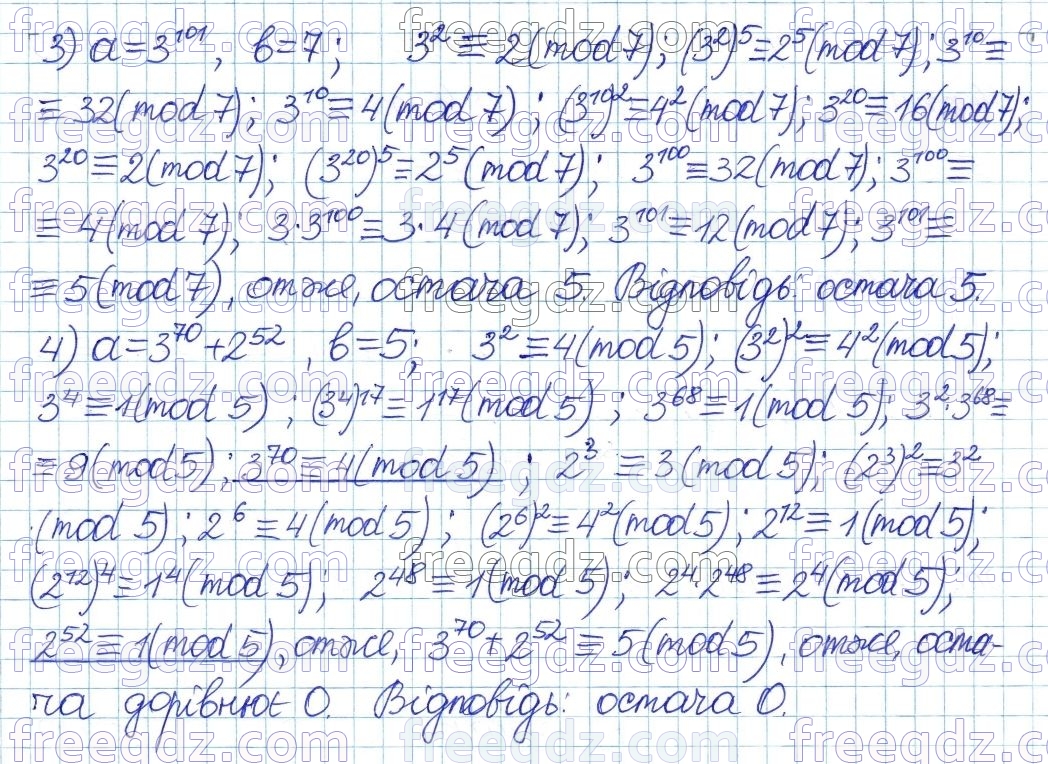 3) a=3¹⁰¹, в=7; 3²≡2(mod 7); (3²)⁵≡2⁵(mod 7); 3¹⁰≡
≡32(mod 7); 3¹⁰≡4(mod 7); (3¹⁰)²≡4²(mod 7); 3²⁰≡16(mod 7);
3²⁰≡2(mod 7); (3²⁰)⁵≡2⁵(mod 7); 3¹⁰⁰≡32(mod 7); 3¹⁰⁰≡
≡4(mod 7); 3·3¹⁰⁰≡3·4(mod 7); 3¹⁰¹≡12(mod 7); 3¹⁰¹≡
≡5(mod 7), отже, остача 5. Відповідь: остача 5.
4) a=3⁷⁰+2⁵², в=5; 3²≡4(mod 5); (3²)²≡4²(mod 5);
3⁴≡1(mod 5); (3⁴)¹⁷≡1¹⁷(mod 5); 3⁶⁸≡1(mod 5); 3²·3⁶⁸≡
≡9(mod 5); 3⁷⁰≡4(mod 5); 2³≡3(mod 5); (2³)²≡3²
(mod 5); 2⁶≡4(mod 5); (2⁶)²≡4²(mod 5); 2¹²≡1(mod 5);
(2¹²)⁴≡1⁴(mod 5); 2⁴⁸≡1(mod 5); 2⁴·2⁴⁸≡2⁴(mod 5);
2⁵²≡1(mod 5), отже, 3⁷⁰+2⁵²≡5(mod 5), отже, оста-
ча дорівнює 0. Відповідь: остача 0.